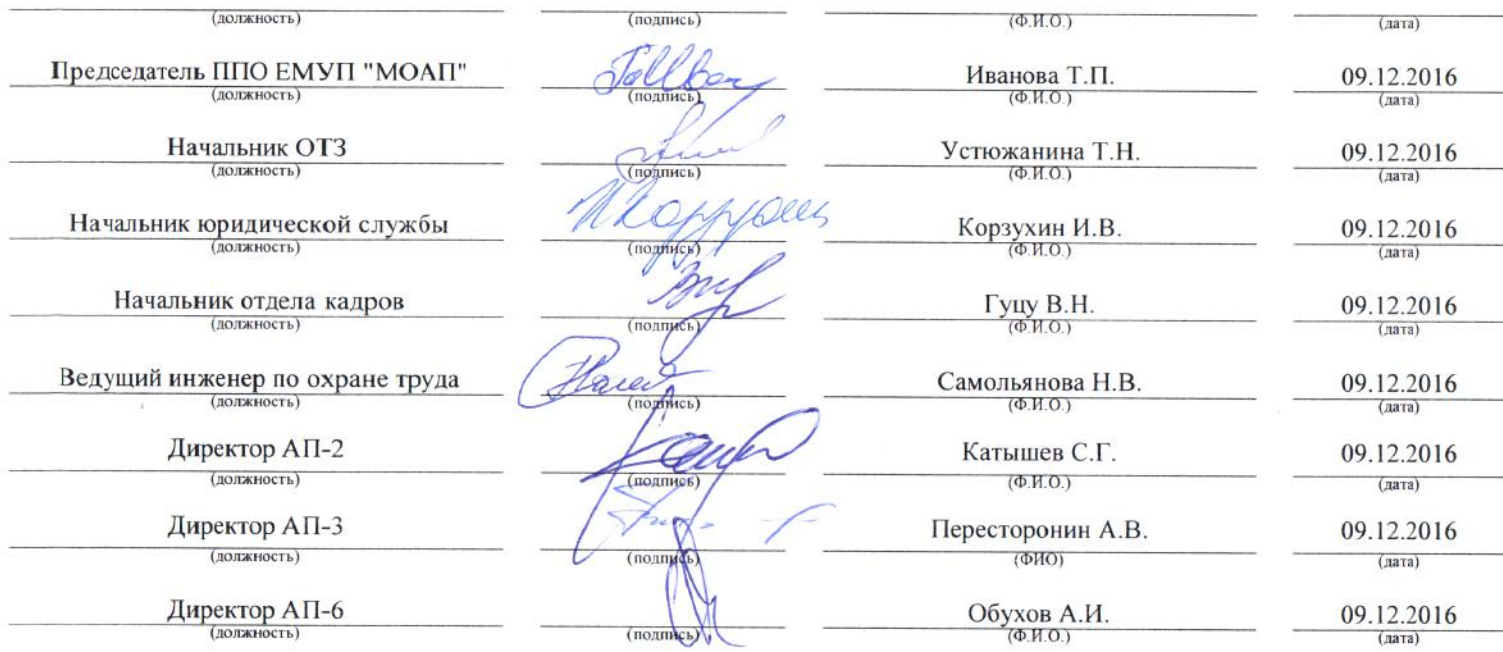 (должность) (подпись) (Ф.И.О.) (дата)
Председатель ППО ЕМУП "МОАП" Иванова Т.П. 09.12.2016
(должность) (подпись) (Ф.И.О.) (дата)
Начальник ОТЗ Устюжанина Т.Н. 09.12.2016
(должность) (подпись) (Ф.И.О.) (дата)
Начальник юридической службы Корзухин И.В. 09.12.2016
(должность) (подпись) (Ф.И.О.) (дата)
Начальник отдела кадров Гуцу В.Н. 09.12.2016
(должность) (подпись) (Ф.И.О.) (дата)
Ведущий инженер по охране труда Самольянова Н.В. 09.12.2016
(должность) (подпись) (Ф.И.О.) (дата)
Директор АП-2 Катышев С.Г. 09.12.2016
(должность) (подпись) (Ф.И.О.) (дата)
Директор АП-3 Пересторонин А.В. 09.12.2016
(должность) (подпись) (ФИО) (дата)
Директор АП-6 Обухов А.И. 09.12.2016
(должность) (подпись) (Ф.И.О.) (дата)